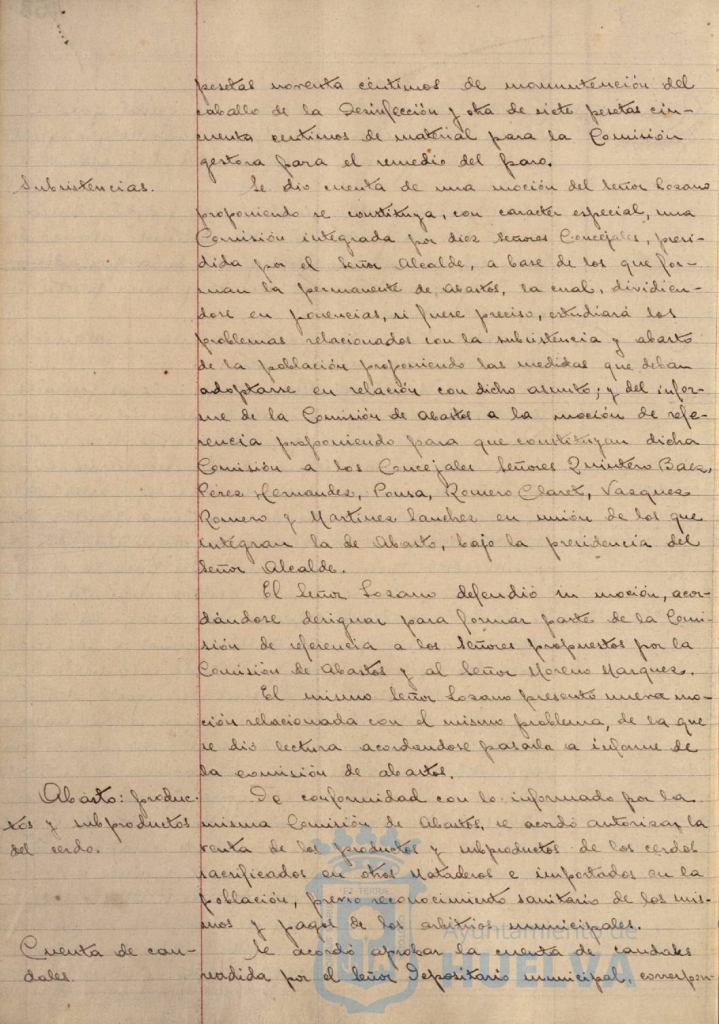 pesetas noventa céntimos de manutención del
caballo de la Desinfección y otra de siete pesetas cin-
cuenta centimos de material para la Comisión
gestora para el remedio del paro.
Subsistencias.
Se dio cuenta de una moción del Señor Lozano
proponiendo se constituya, con caracter especial, una
Comisión integrada por diez Señores Concejales, presi-
dida por el Señor Alcalde, a base de los que for-
man la permanente de Abastos, la cual, dividien-
dose en ponencias, si fuere preciso, estudiará los
problemas relacionados con la subsistencia y abasto
de la población proponiendo las medidas que deban
adoptarse en relación con dicho asunto; y del infor-
me de la Comisión de Abastos a la moción de refe-
rencia proponiendo para que constituyan dicha
Comisión a los Concejales Señores Quintero Baez,
Pérez Hernandez, Ponsa, Romero Claret, Vazquez
Romero y Martínez Sanchez en unión de los que
integran la de Abasto, bajo la presidencia del
Señor Alcalde.
El Señor Lozano defendió su moción, acor-
dándose designar para formar parte de la Comi-
sión de referencia a los Señores propuestos por la
Comisión de Abastos y al Señor Moreno Marquez.
El mismo Señor Lozano presentó nueva mo-
ción relacionada con el mismo problema, de la que
se dió lectura acordandose pasarla a informe de
la comisión de abastos.
Abasto: produc-
tos y subproductos
del cerdo.
De conformidad con lo informado por la
misma Comisión de Abastos, se acordó autorizar la
venta de los productos y subproductos de los cerdos
sacrificados en otros Mataderos e importados en la
población, previo reconocimiento sanitario de los mis-
mos y pagos de los arbitrios municipales.
Cuenta de cau-
dales.
Se acordó aprobar la cuenta de caudales
rendida por el Señor Depositario municipal, correspon-
Ayuntamiento de
HUELVA